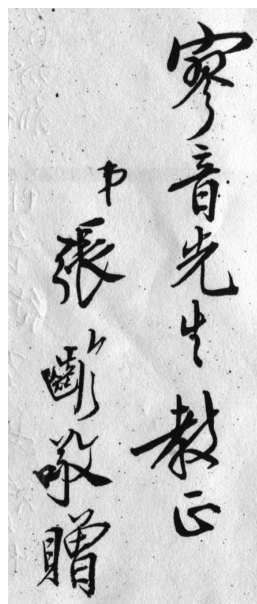 寥音先生教正
弟張敬贈